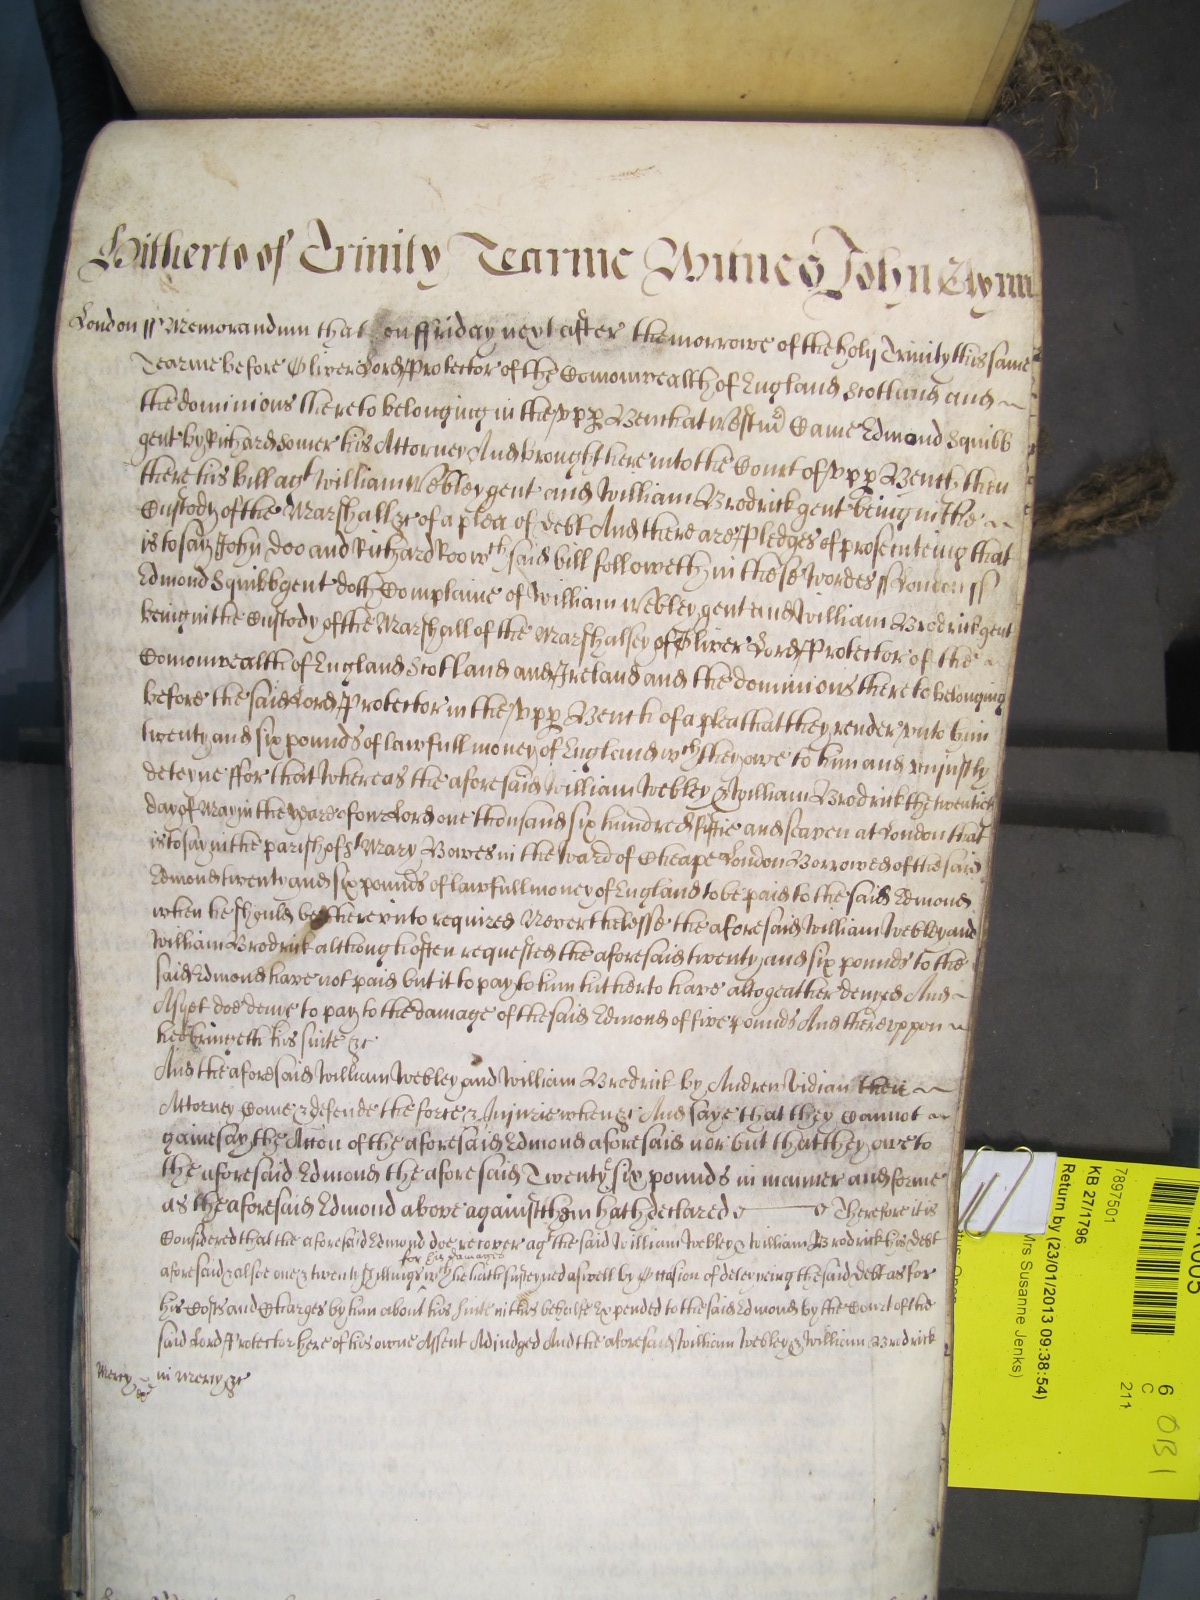 Hitherto of Trinity Tearme Witnes John Glynn
London ss Memorandum that on ffriday next after the morrowe of the holy Trinity this same
Tearme before Oliver Lord Protector of the Comonwealth of England Scotland and
the dominions thereto belonging in the vpp Bench at Westmr Came Edmond Squibb
gent by Richard Somer his Attorney And brought here into the Court of vpp Bench then
there his bill agt William Webley gent and William Brodrick gent being in the
Custody of the Marshall &c of a plea of debt And there are Pledges of prosecuteing that
is to say John Doo and Richard Roo wch said bill followeth in these wordes ss London ss
Edmond Squibb gent doth Complaine of William Webley gent and William Brodrick gent
being in the Custody of the Marshall of the Marshalsey of Oliver Lord Protector of the
Comonwealth of England Scotland and Ireland and the dominions thereto belonging
before the said Lord Protector in the vpp Bench of a plea that they render vnto him
twenty and six pounds of lawfull money of England wch they owe to him and vniustly
deteyne ffor that whereas the aforesaid William Webley & William Brodrick the twentieth
day of May in the yeare of our Lord one thousand six hundred fiftie and seaven at London that
is to say in the parish of St Mary Bowes in the ward of Cheape London Borrowed of the said
Edmond twenty and six pounds of lawfull money of England to be paid to the said Edmond
when he should be therevnto required Neverthelesse the aforesaid William Webley and
William Brodrick although often requested the aforesaid twenty and six pounds to the
said Edmond have not paid but it to pay to him hitherto have altogeather denyed And
As yet doe denie to pay to the damage of the said Edmond of five pounds And therevppon
hee bringeth his suite &c
And the aforesaid William Webley and William Brodrick by Andrew Vidian their
Attorney Come & defende the force & Iniurie when &c And saye that they Cannot
gainesay the Accon of the aforesaid Edmond aforesaid nor but that they owe to
the aforesaid Edmond the aforesaid Twenty six pounds in manner and forme
as the aforesaid Edmond above against them hath declared Therefore it is
Considered that the aforesaid Edmond doe recover agt the said William Webley & William Brodrick his debt
for his damages
aforesaid & alsoe one & twenty shillings wch he hath susteyned aswell by Occasion of deteyneing the said debt as for
his Costs and Charges by him about his suite in this behalfe Expended to the said Edmond by the Court of the
said Lord Protector here of his owne Assent Adiudged And the aforesaid William Webley & William Brodrick
Mercy in Mercy &c
7897501
KB 27/1796
Return by (23/01/2013 09:38:54)
Mrs Susanne Jenks)
6
C
211